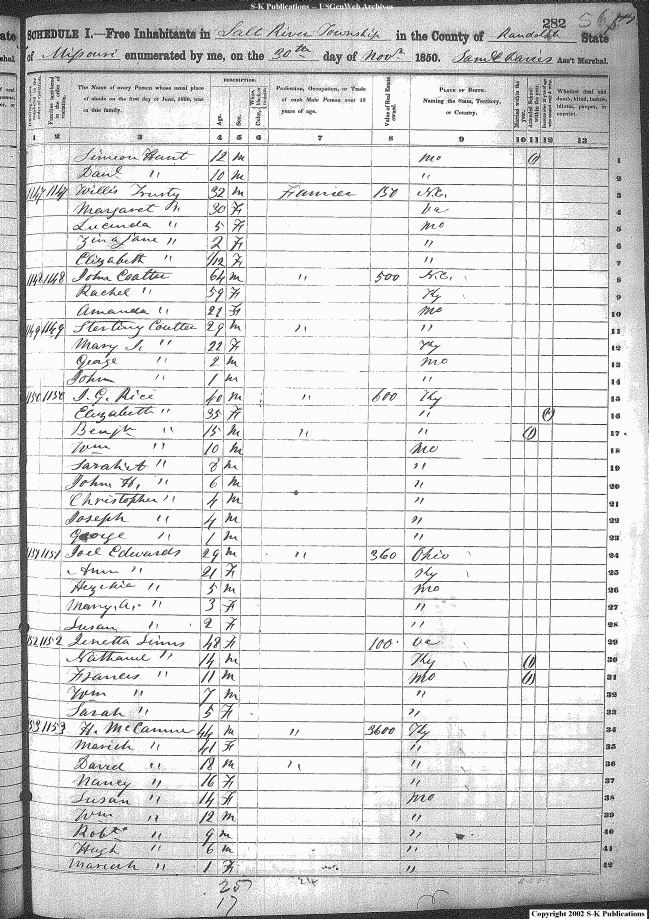 S-K Publications -- USGenWeb Archives
282
SCHEDULE I.—Free Inhabitants in Salt River Township in the County of Randolph State
of Missouri enumerated by me, on the 30th day of Novr 1850. Saml Davis Ass't Marshal.
DESCRIPTION.
The Name of every Person whose usual place of abode on the first day of June, 1850, was in this family.
Age.
Sex.
Profession, Occupation, or Trade of each Male Person over 15 years of age.
Value of Real Estate owned.
PLACE OF BIRTH.
Naming the State, Territory, or Country.
Whether deaf and dumb, blind, insane, idiotic, pauper, or convict.
1 2 3 4 5 6 7 8 9 10 11 12 13
Simeon Hunt 12 m Mo 1 1
Danl " 10 m " 2
1147 1147 Willis Trusty 32 m Farmer 150 N.C. 3
Margaret " 30 F Va 4
Lucinda " 5 F Mo 5
" 2 F " 6
Elizabeth " /12 F " 7
1148 1148 John Coatter 64 m " 500 N.C. 8
Rachel " 59 F Ky 9
Amanda " 21 F Mo 10
1149 1149 Sterling Coatter 29 m " " 11
Mary J. " 22 F Ky 12
George " 2 m Mo 13
John " 1 m " 14
1150 1150 Rice 40 m " 600 Ky 15
Elizabeth " 35 F " 1 16
Benjn " 15 m " " 1 17
Wm " 10 m Mo 18
Sarah A " 8 m " 19
John H. " 6 m " 20
Christopher " 4 m " 21
Joseph " 4 m " 22
George " 1 m " 23
1151 1151 Joel Edwards 29 m " 360 Ohio 24
Ann " 21 F Ky 25
Hezekia " 5 m Mo 26
Mary A. " 3 F " 27
Susan " 2 F " 28
1152 1152 Jenetta Simms 48 F 100 Va 29
Nathaniel " 14 m Ky 1 30
Francis " 11 m Mo 1 31
Wm " 7 m " 32
Sarah " 5 F " 33
1153 1153 H. McCanne 44 m " 3600 Ky 34
Mariah " 41 F " 35
David " 18 m " " 36
Nancy " 16 F " 37
Susan " 14 F Mo 38
Wm " 12 m " 39
Robt " 9 m " 40
Hugh " 6 m " 41
Mariah " 1 F " 42
25
17
Copyright 2002 S-K Publications